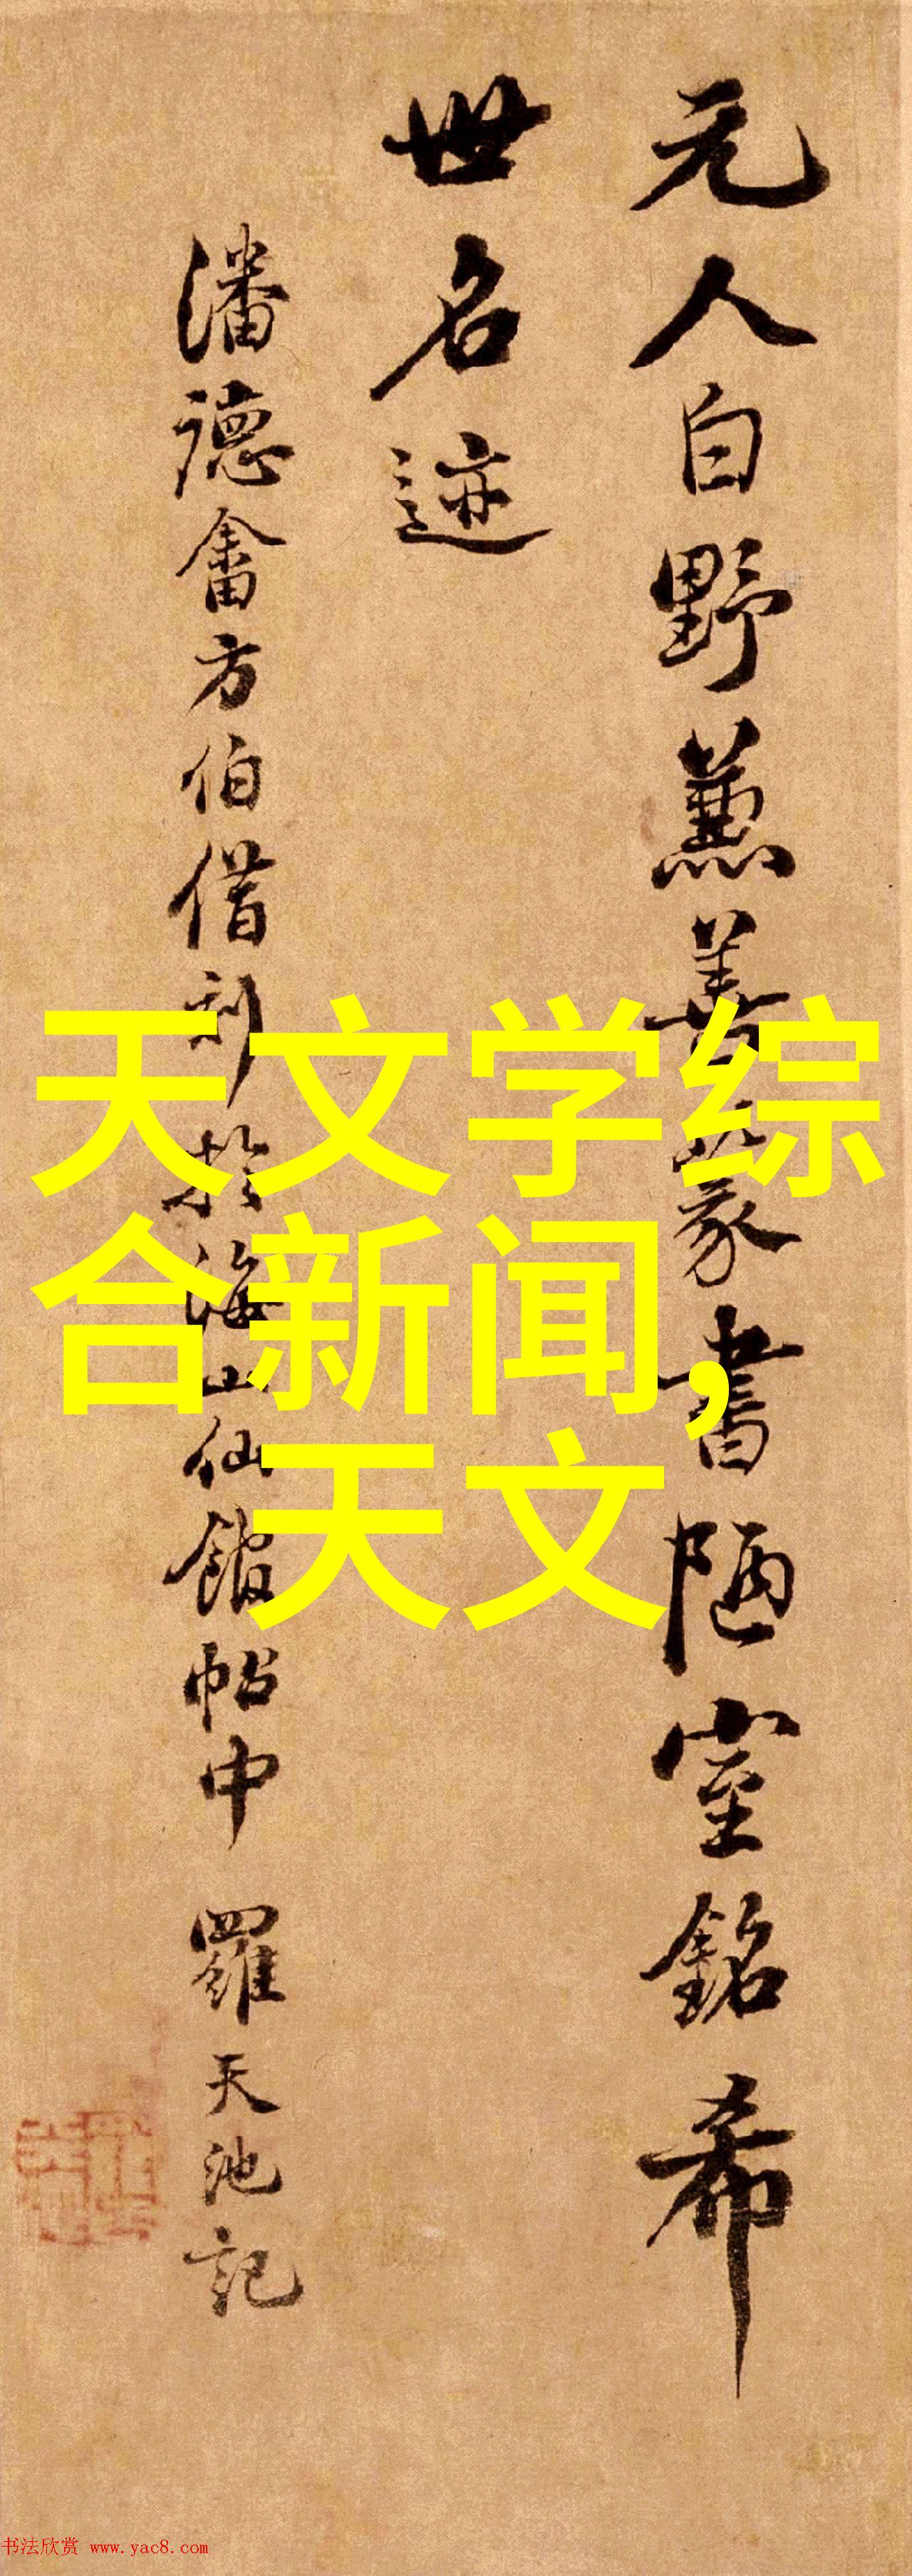 元人白野兼善篆書陋室銘希
世名迹
潘德畬方伯借刻於海山仙館帖中 羅天池記
天文学综
合新闻,
天文
书法欣赏 www.yac8.com